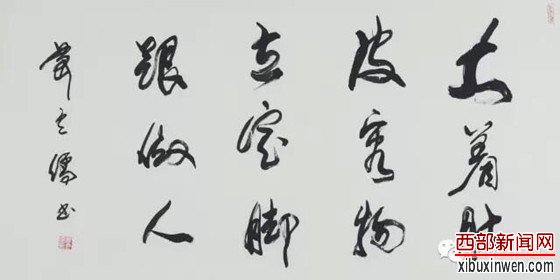 大着肚
皮容物
立定脚
跟做人
儒书
西部新闻网
xibuxinwen.com